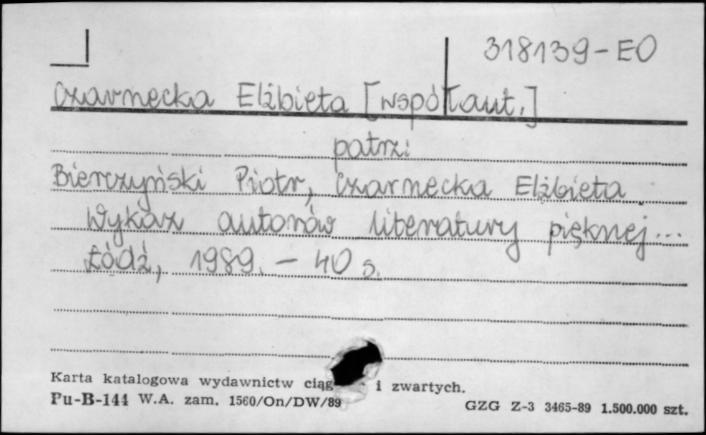 318139-EO
Czarnecka Elżbieta [współaut.]
patrz:
Bierczyński Piotr, Czarnecka Elżbieta
Wykaz autorów literatury pięknej...
Łódź, 1989. - 40 s.
Karta katalogowa wydawnictw ciąg i zwartych.
Pu-B-144 W.A. zam. 1560/On/DW/89
GZG Z-3 3465-89 1.500.000 szt.